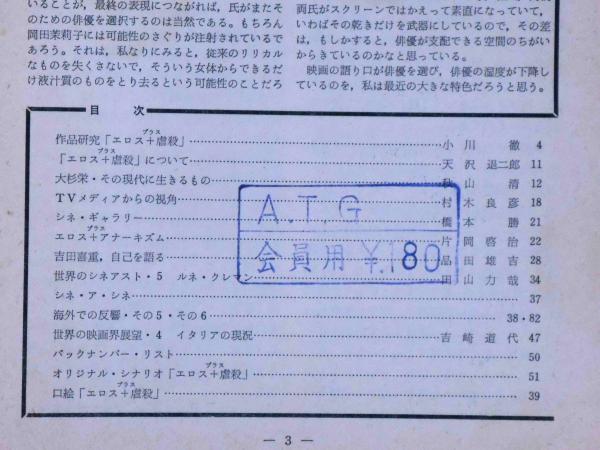 いることが、最終の表現につながれば、氏がまたそ
のための俳優を選択するのは当然である。もちろん
岡田茉莉子には可能性のさぐりが注射されているで
あろう。それは、私なりにみると、従来のリリカル
なものを失くさないで、そういう女体からできるだ
け液汁質のものをとり去るという可能性のことだろ
両氏がスクリーンではかえって素直になっていて、
いわばその乾きだけを武器にしているので、その差
は、もしかすると、俳優が支配できる空間のちがい
からきているのかなと思っている。
映画の語り口が俳優を選び、俳優の湿度が下降し
ているのを、私は最近の大きな特色だろうと思う。
目 次
作品研究「エロス+虐殺」 小川 徹 4
「エロス+虐殺」について 天沢退二郎 11
大杉栄・その現代に生きるもの 秋山 清 12
TVメディアからの視角 村木良彦 18
シネ・ギャラリー 橋本 勝 21
エロス+アナーキズム 片岡啓治 22
吉田喜重、自己を語る 品田雄吉 28
世界のシネアスト・5 ルネ・クレマン 田山力哉 34
シネ・ア・シネ 37
海外での反響・その5・その6 38・82
世界の映画界展望・4 イタリアの現況 吉崎道代 47
バックナンバー・リスト 50
オリジナル・シナリオ「エロス+虐殺」 51
口絵「エロス+虐殺」 39
A.T.G
会員用 ¥.180
— 3 —